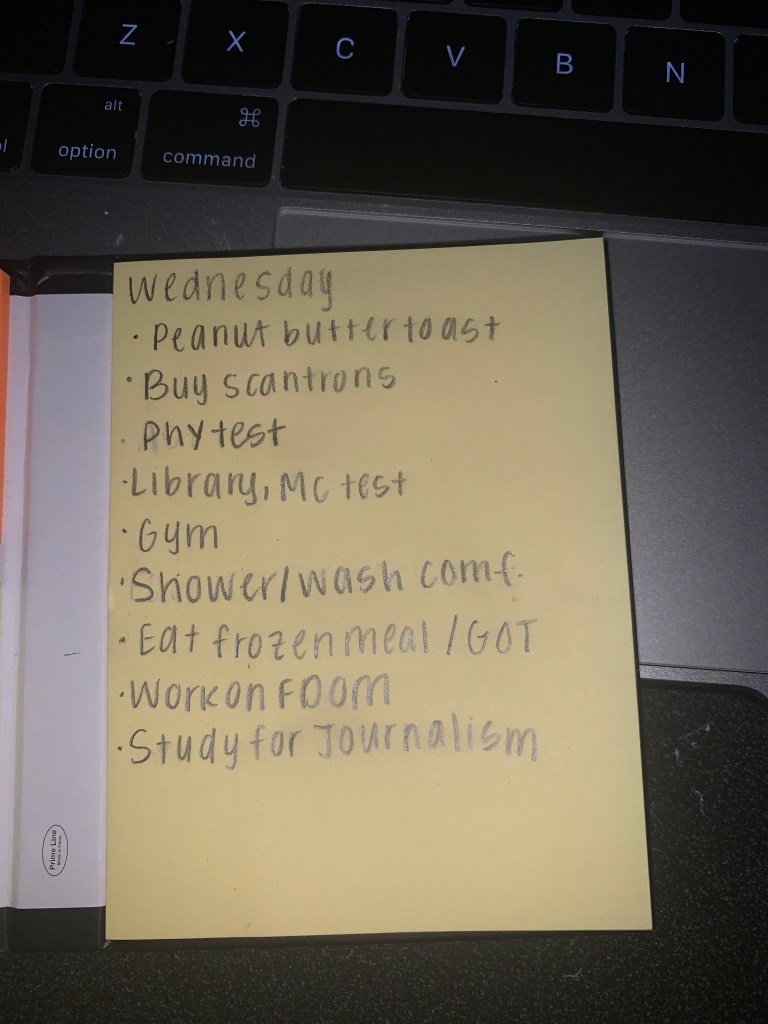 Z X C V B N
alt ⌘
option command
Wednesday
· Peanut butter toast
· Buy scantrons
· Phy test
· Library, MC test
· Gym
· Shower/wash comf.
· Eat frozen meal / GOT
· Work on FDOM
· Study for Journalism
Prime Line